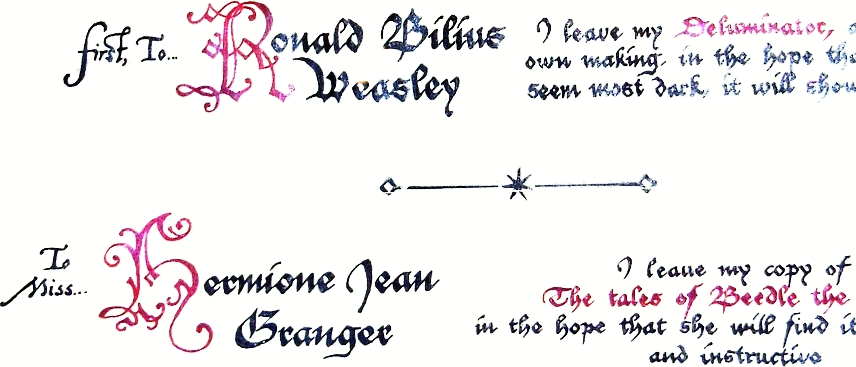 first, To...
Ronald Bilius
Weasley
I leave my Deluminator,
own making, in the hope
seem most dark, it will
To
Miss...
Hermione Jean
Granger
I leave my copy of
The tales of Beedle the
in the hope that she will find it
and instructive